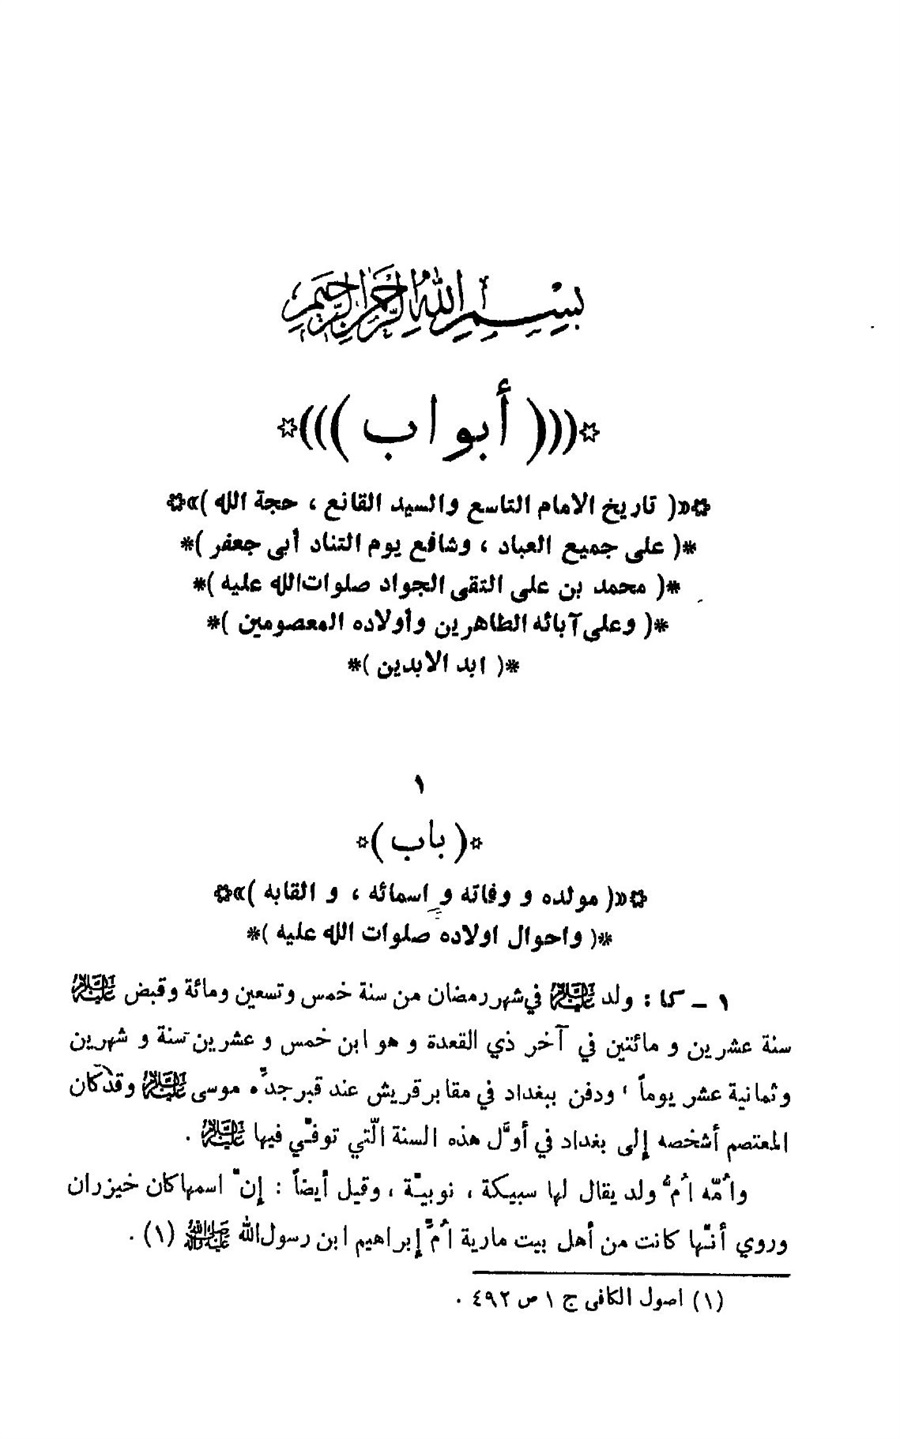 بسم الله الرحمن الرحيم
☆(((( أبواب ))))☆
✿«( تاريخ الامام التاسع والسيد القانع ، حجة الله )»✿
*( على جميع العباد ، وشافع يوم التناد أبى جعفر )*
*( محمد بن على التقى الجواد صلوات الله عليه )*
*( وعلى آبائه الطاهرين وأولاده المعصومين )*
*( ابد الابدين )*
١
☆( باب )☆
✿«( مولده و وفاته و اسمائه ، و القابه )»✿
*( واحوال اولاده صلوات الله عليه )*
١ ـ كا : ولد عليه السلام في شهر رمضان من سنة خمس وتسعين ومائة وقبض عليه السلام
سنة عشرين و مائتين في آخر ذي القعدة و هو ابن خمس و عشرين سنة و شهرين
وثمانية عشر يوماً ، ودفن ببغداد في مقابر قريش عند قبر جدِّه موسى عليه السلام وقد كان
المعتصم أشخصه إلى بغداد في أوَّل هذه السنة الّتي توفّي فيها عليه السلام .
واُمّه اُمُّ ولد يقال لها سبيكة ، نوبيّة ، وقيل أيضاً : إنَّ اسمها كان خيزران
وروي أنّها كانت من أهل بيت مارية اُمِّ إبراهيم ابن رسول الله صلى الله عليه وآله (١) .
(١) اصول الكافى ج ١ ص ٤٩٢ .